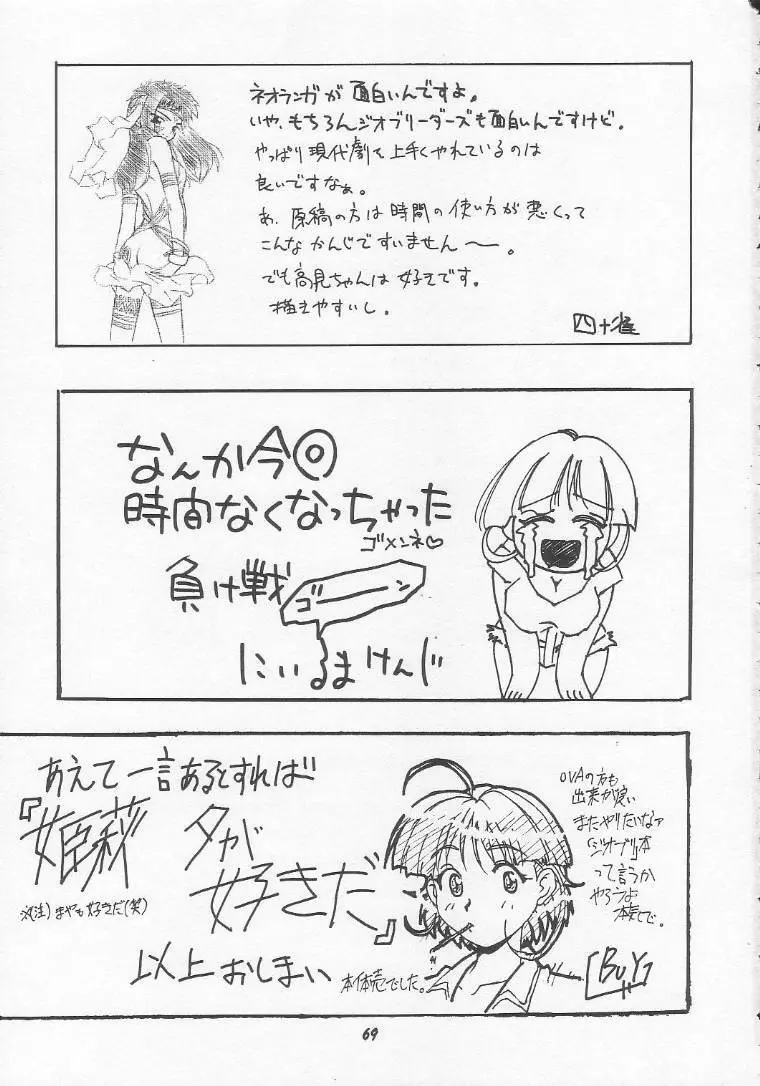 ネオランガが面白いんですよ。
いや、もちろんジオブリーダーズも面白いんですけど。
やっぱり現代劇を上手くやれているのは
良いですなぁ。
あ、原稿の方は時間の使い方が悪くって
こんなかんじですいません〜。
でも高見ちゃんは好きです。
描きやすいし。
四十雀
なんか今◎
時間なくなっちゃった
ゴメンネ♡
負け戦
ゴーン
にいるまけんじ
あえて一言あるとすれば
『姫萩
夕が
好きだ』
※(注)まやも好きだ(笑)
以上おしまい
本体売でした。
OVAの方も
出来が良い
またやりたいなァ
「ジオブリ」本
って言うか
やろうよ
本売で。
[BuY]
69